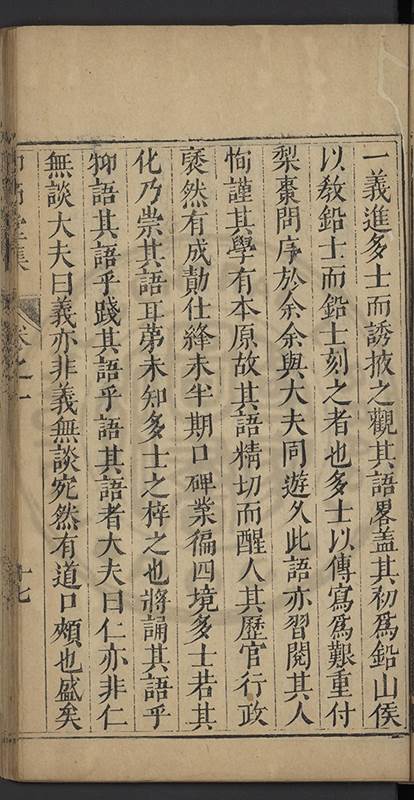 一義進多士而誘掖之觀其語畧蓋其初為鉛山侯
以教鉛士而鉛士刻之者也多士以傳寫為艱重付
梨棗問序於余余與大夫同遊久此語亦習閱其人
恂謹其學有本原故其語精切而醒人其歷官行政
褒然有成勣仕絳未半期口碑業徧四境多士若其
化乃祟其語耳苐未知多士之梓之也將誦其語乎
抑語其語乎踐其語乎語其語者大夫曰仁亦非仁
無談大夫曰義亦非義無談宛然有道口頰也盛矣
卷之一
十七